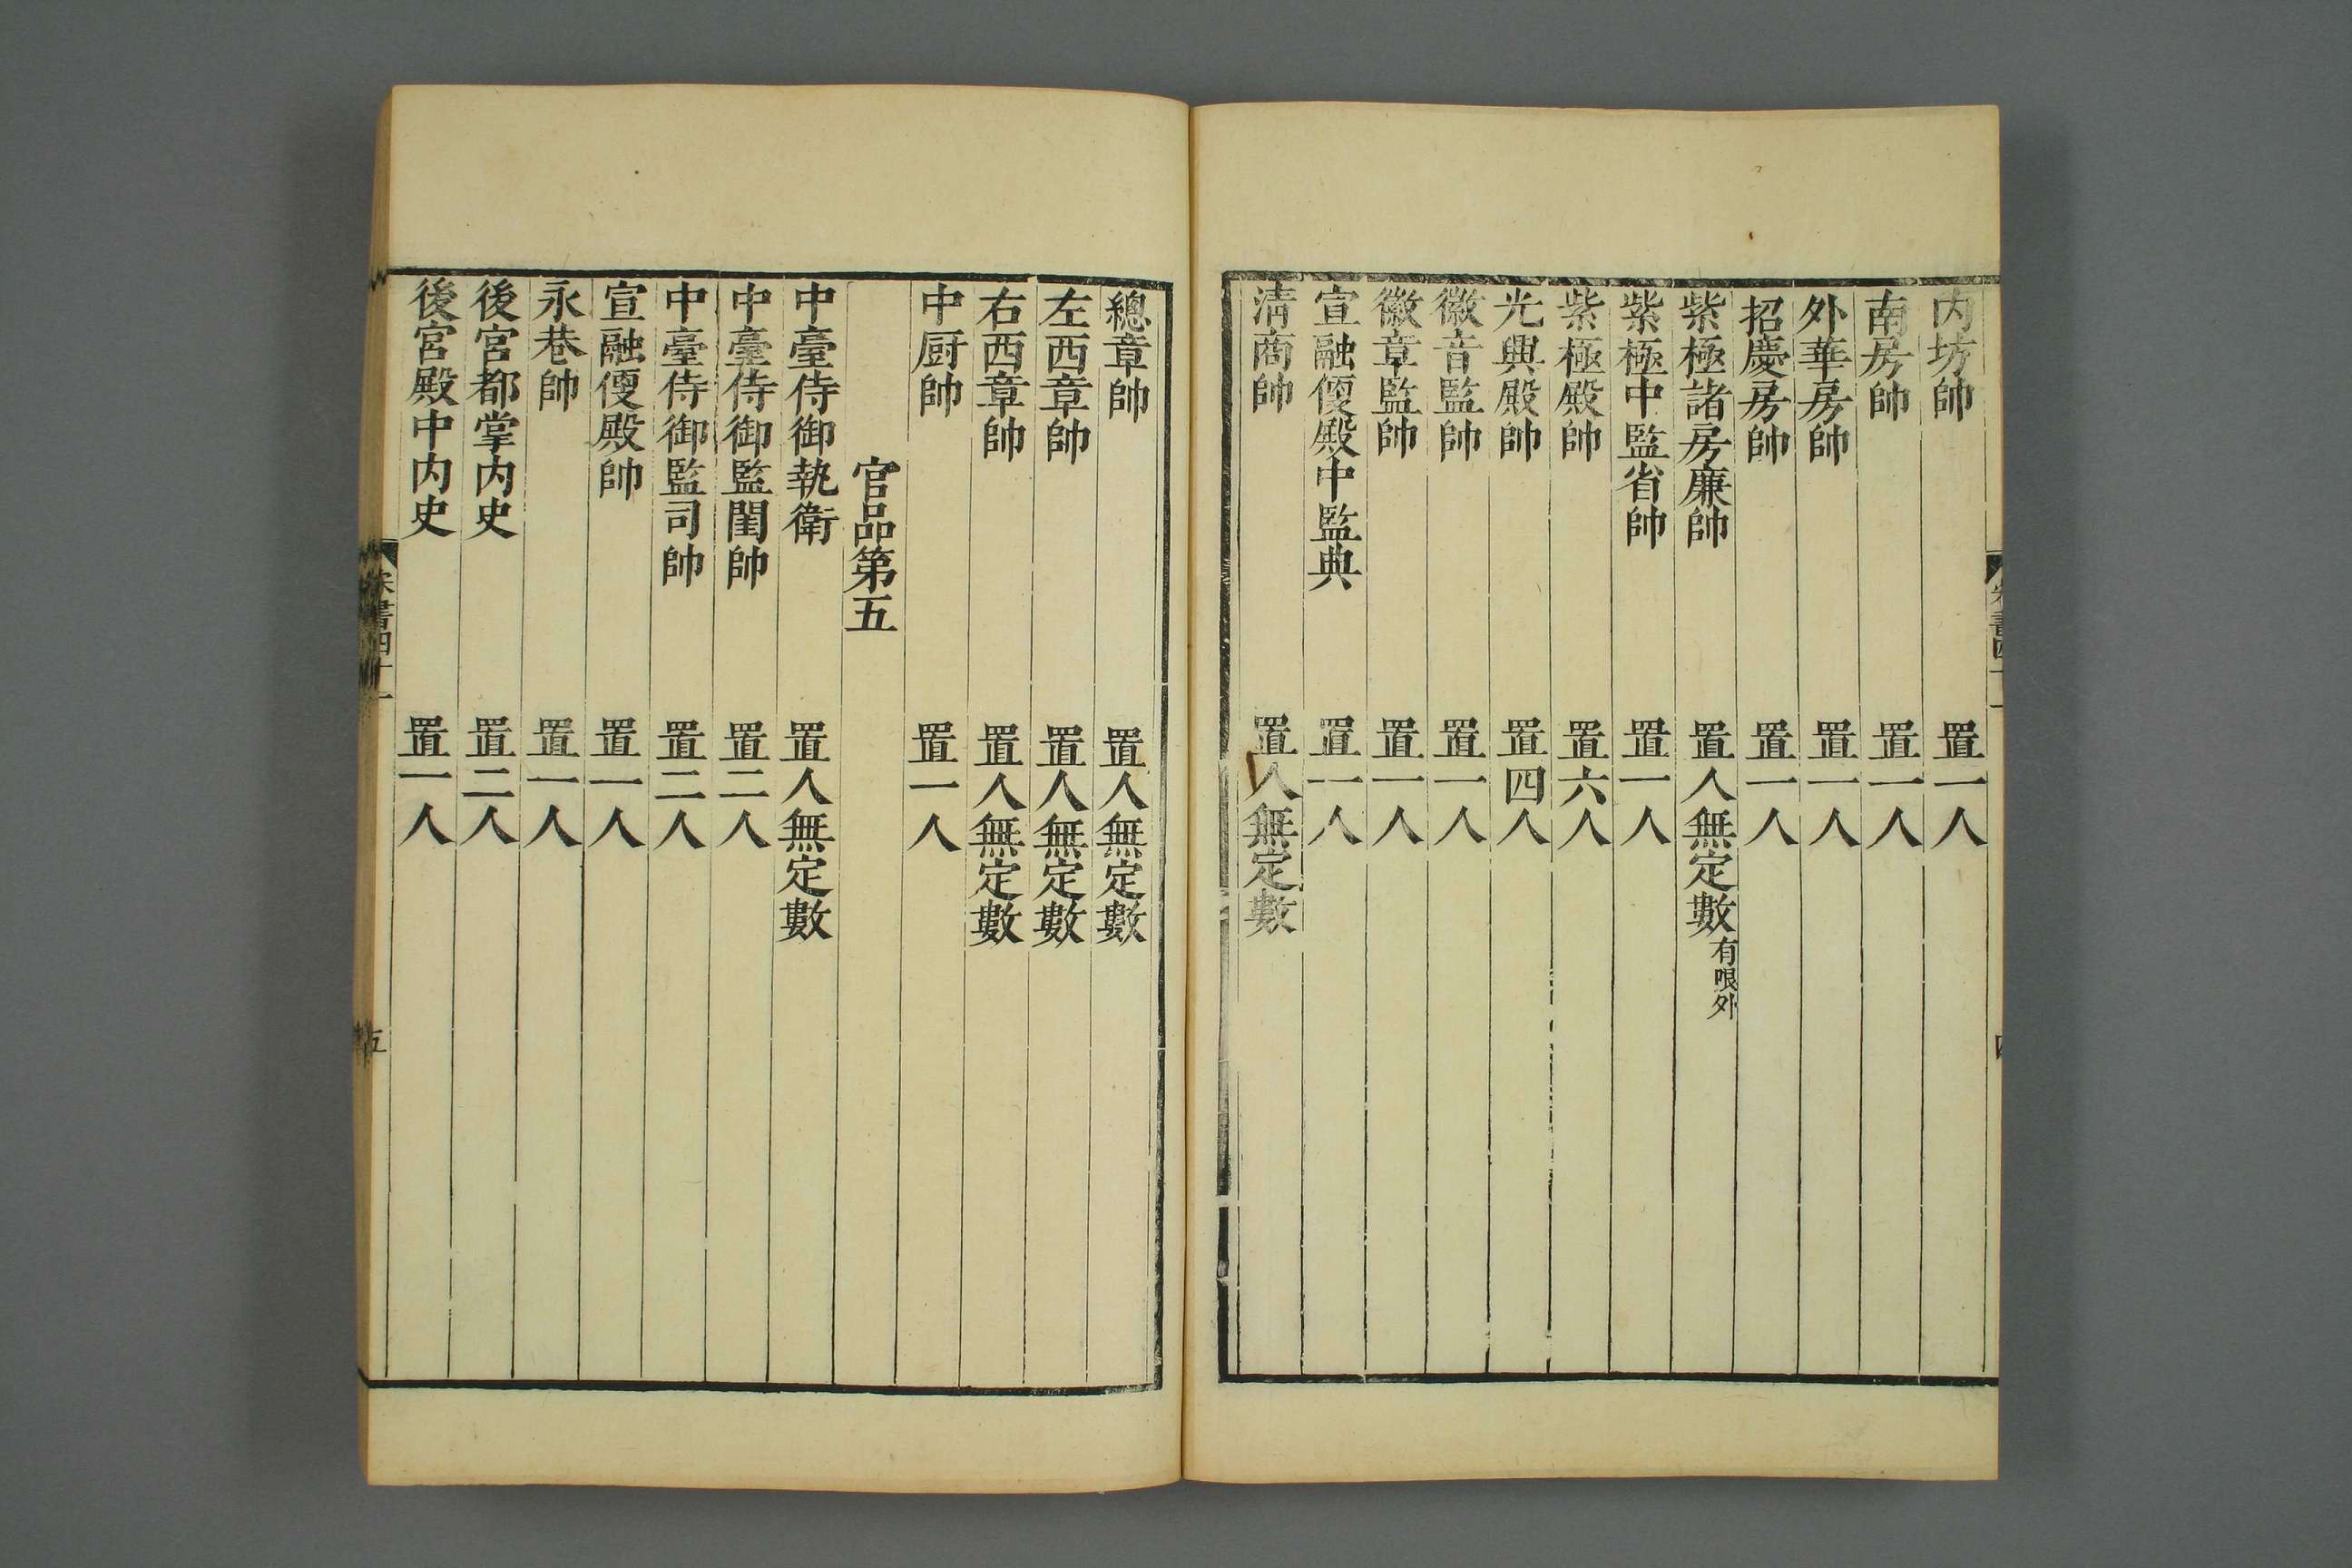 内坊帥 置一人
南房帥 置一人
外華房帥 置一人
招慶房帥 置一人
紫極諸房廉帥 置人無定數 有限外
紫極中監省帥 置一人
紫極殿帥 置六人
光興殿帥 置四人
徽音監帥 置一人
徽章監帥 置一人
宣融便殿中監典 置一人
清商帥 置人無定數
總章帥 置人無定數
左西章帥 置人無定數
右西章帥 置人無定數
中厨帥 置一人
官品第五
中臺侍御執衛 置人無定數
中臺侍御監閨帥 置二人
中臺侍御監司帥 置二人
宣融便殿帥 置一人
永巷帥 置一人
後宮都掌内史 置二人
後宮殿中内史 置一人
宋書四十一
五